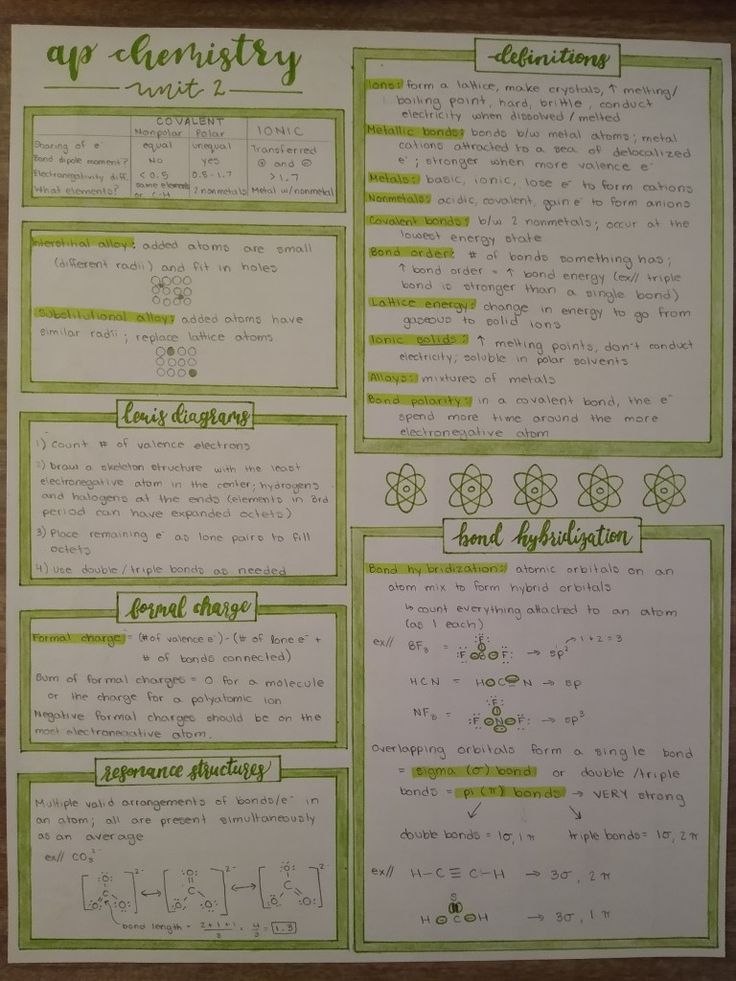 ap chemistry
unit 2
COVALENT
Nonpolar Polar IONIC
Sharing of e⁻ equal unequal Transferred
Bond dipole moment? No yes ⊕ and ⊖
Electronegativity diff. < 0.5 0.5-1.7 > 1.7
What elements? same elements or C-H 2 nonmetals Metal w/nonmetal
Interstitial alloy: added atoms are small
(different radii) and fit in holes
Substitutional alloy: added atoms have
similar radii; replace lattice atoms
lewis diagrams
1) Count # of valence electrons
2) Draw a skeleton structure with the least
electronegative atom in the center; hydrogens
and halogens at the ends (elements in 3rd
period can have expanded octets)
3) Place remaining e⁻ as lone pairs to fill
octets
4) Use double/triple bonds as needed
formal charge
Formal charge = (# of valence e⁻) - (# of lone e⁻ +
# of bonds connected)
Sum of formal charges = 0 for a molecule
or the charge for a polyatomic ion
Negative formal charges should be on the
most electronegative atom.
resonance structures
Multiple valid arrangements of bonds/e⁻ in
an atom; all are present simultaneously
as an average
ex// CO₃²⁻
[:O: C :O: :O:]²⁻ ↔ [:O: C :O: :O:]²⁻ ↔ [:O: C :O: :O:]²⁻
bond length = 2+1+1/3 = 4/3 = 1.3
definitions
Ions: form a lattice, make crystals, ↑ melting/
boiling point, hard, brittle, conduct
electricity when dissolved/melted
Metallic bonds: bonds b/w metal atoms; metal
cations attracted to a sea of delocalized
e⁻; stronger when more valence e⁻
Metals: basic, ionic, lose e⁻ to form cations
Nonmetals: acidic, covalent, gain e⁻ to form anions
Covalent bonds: b/w 2 nonmetals; occur at the
lowest energy state
Bond order: # of bonds something has;
↑ bond order = ↑ bond energy (ex// triple
bond is stronger than a single bond)
Lattice energy: change in energy to go from
gaseous to solid ions
Ionic solids: ↑ melting points, don't conduct
electricity; soluble in polar solvents
Alloys: mixtures of metals
Bond polarity: in a covalent bond, the e⁻
spend more time around the more
electronegative atom
bond hybridization
Bond hybridization: atomic orbitals on an
atom mix to form hybrid orbitals
↳ count everything attached to an atom
(as 1 each)
1+2=3
:F:
ex// BF₃ = :F B F: → sp²
HCN = H C N → sp
:F:
NF₃ = :F N F: → sp³
Overlapping orbitals form a single bond
= sigma (σ) bond or double/triple
bonds = pi (π) bonds → VERY strong
double bonds = 1σ, 1π triple bonds = 1σ, 2π
ex// H-C≡C-H → 3σ, 2π
S
H C H → 3σ, 1π